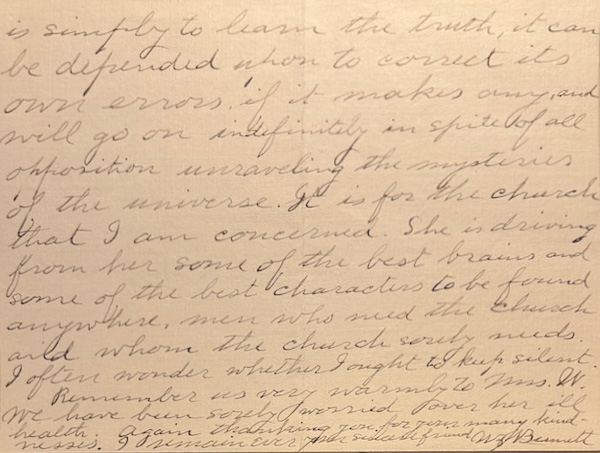 is simply to learn the truth, it can
be depended upon to correct its
own errors, if it makes any, and
will go on indefinitely in spite of all
opposition unraveling the mysteries
of the universe. It is for the church
that I am concerned. She is driving
from her some of the best brains and
some of the best characters to be found
anywhere, men who need the church
and whom the church sorely needs.
I often wonder whether I ought to keep silent.
Remember us very warmly to Mrs. W.
We have been sorely worried over her ill
health. Again thanking you for your many kind-
nesses. I remain ever your friend